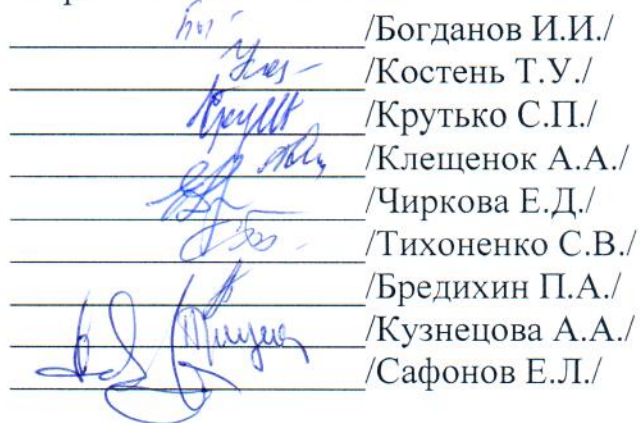 /Богданов И.И./
/Костень Т.У./
/Крутько С.П./
/Клещенок А.А./
/Чиркова Е.Д./
/Тихоненко С.В./
/Бредихин П.А./
/Кузнецова А.А./
/Сафонов Е.Л./